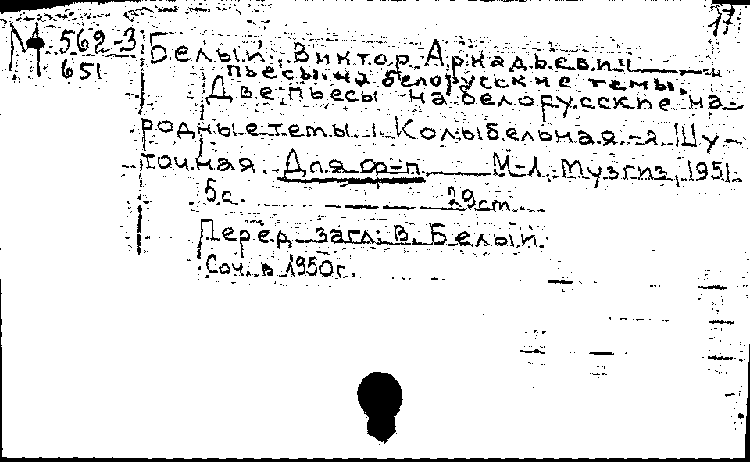 17
М 562-3
651
Белый, Виктор Аркадьевич
пьесы на белорусские темы.
Две пьесы на белорусские на-
родные темы. 1 Колыбельная.-я Шу-
точная. Для ф-п. М-Л, Музгиз, 1951.
5 с. 29 ст.
Перед загл: В. Белый.
Соч. в 1950 г.